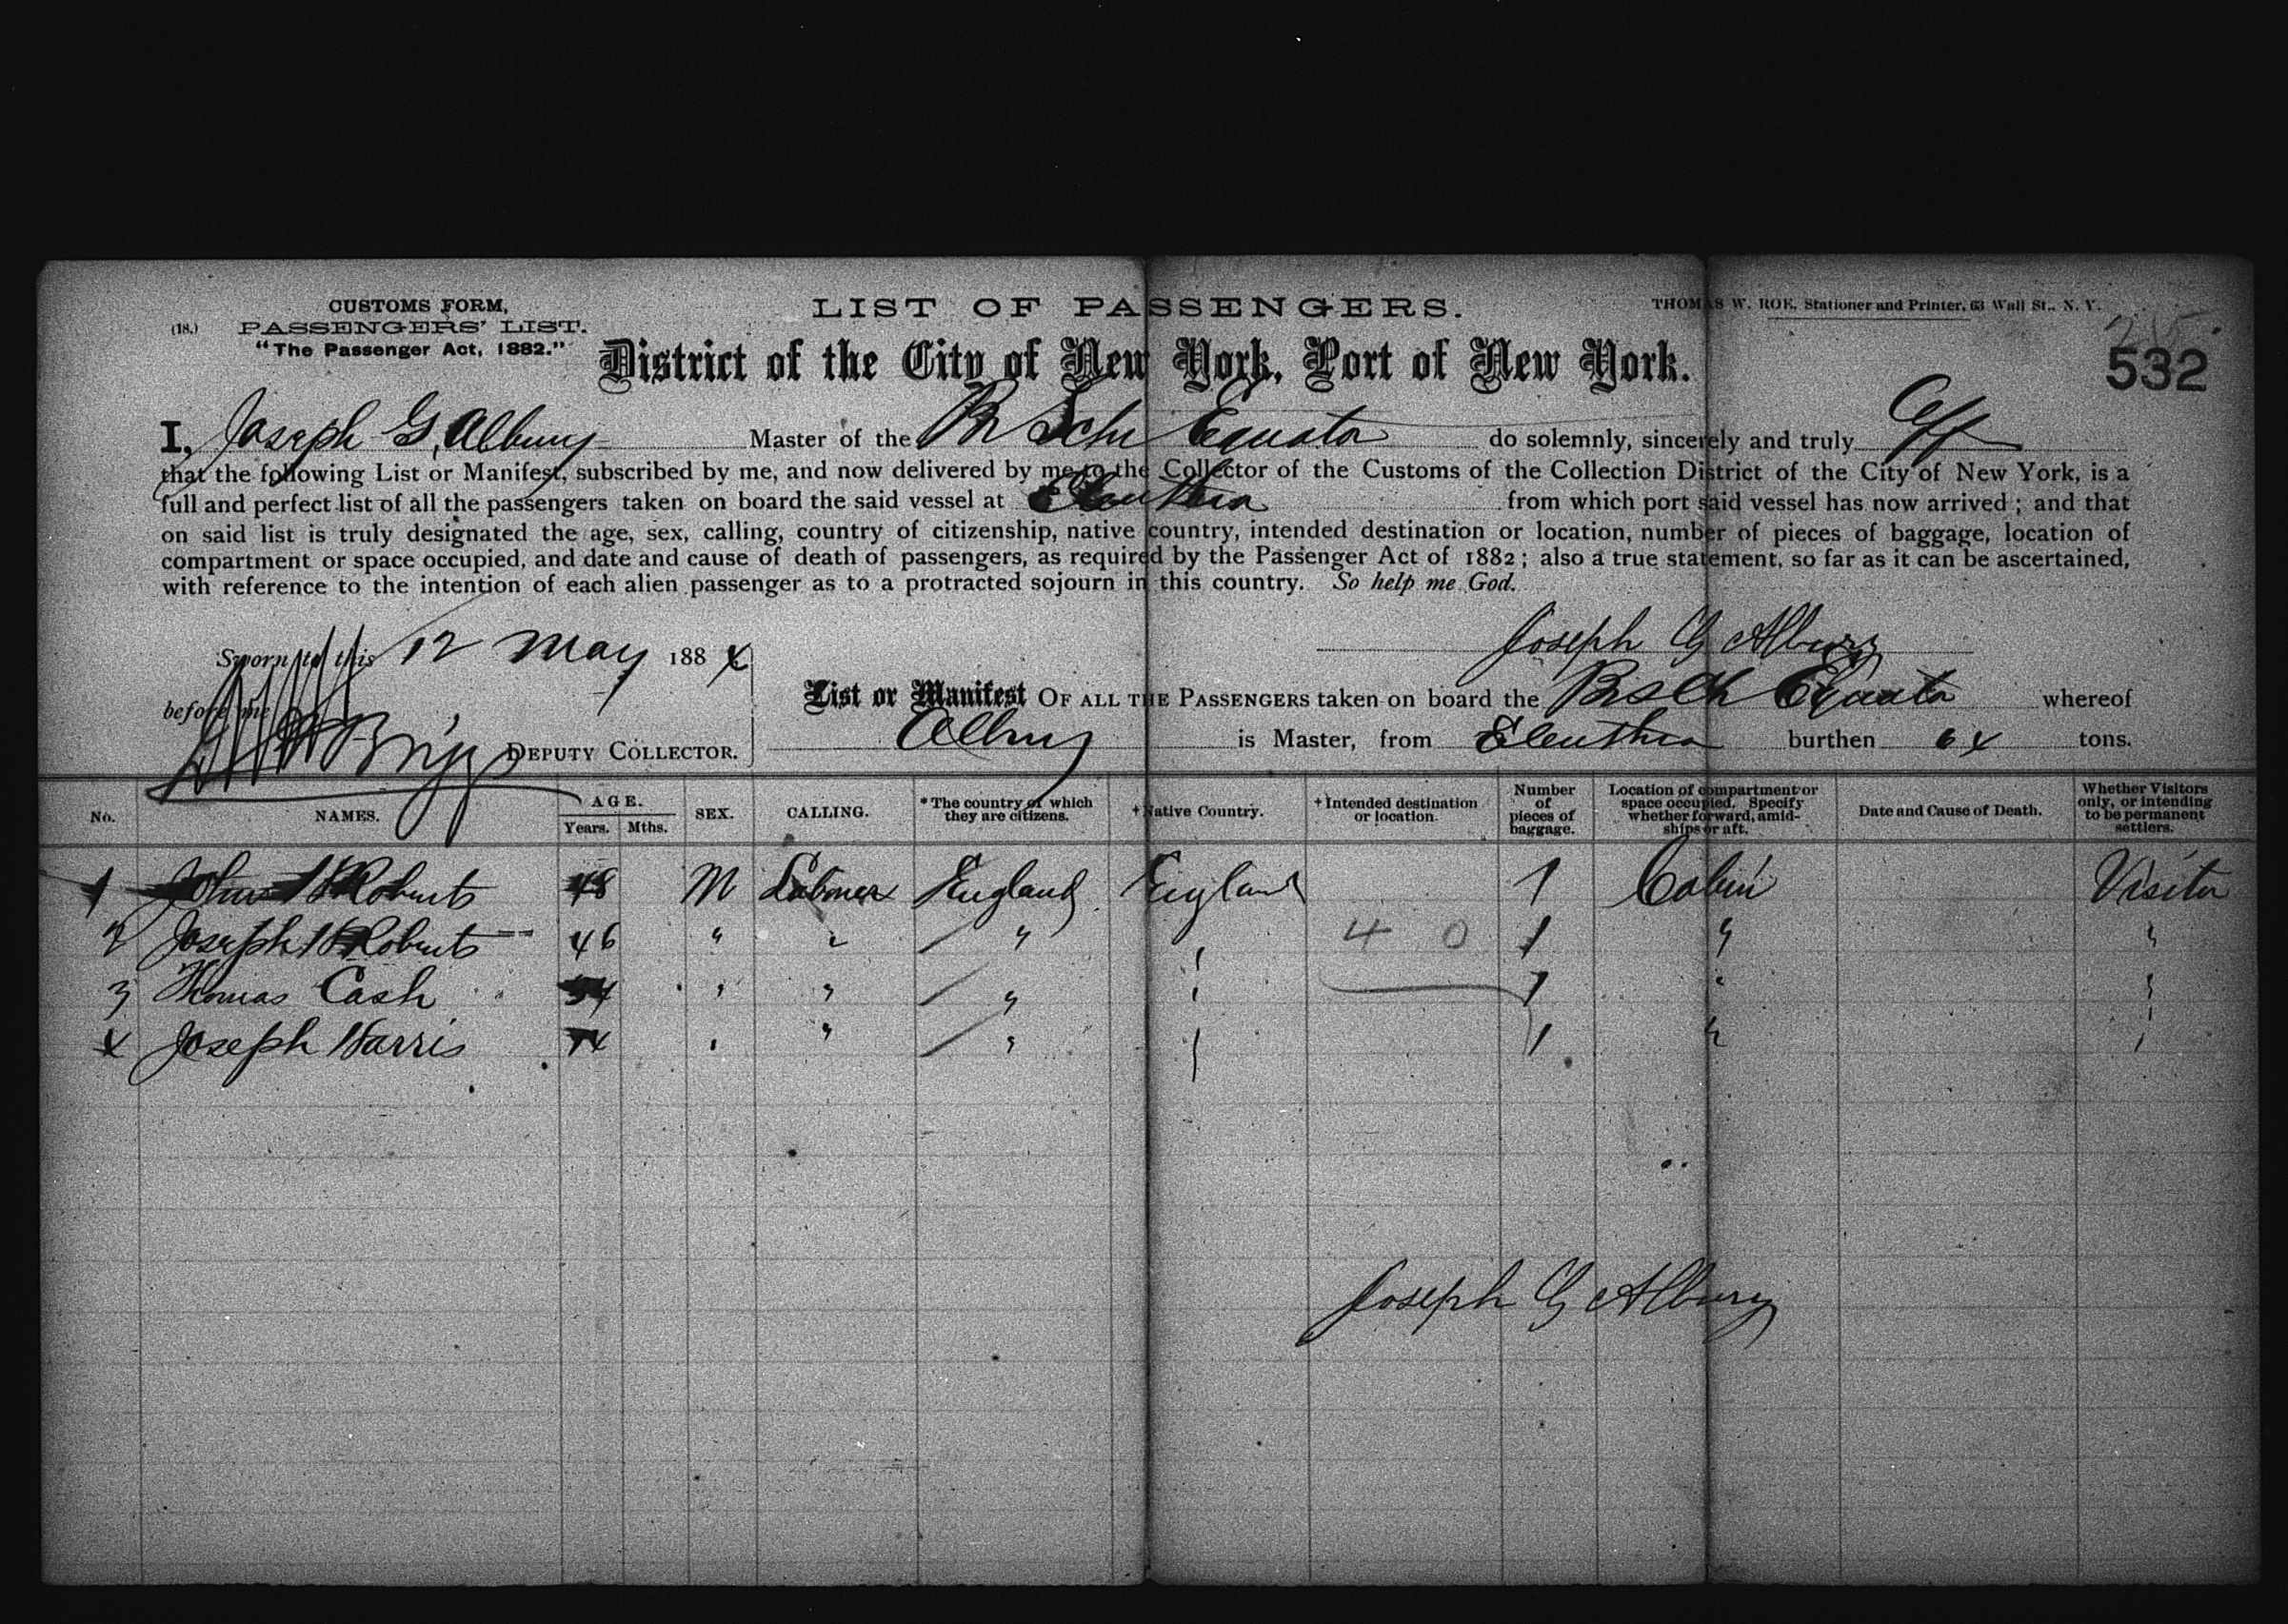 CUSTOMS FORM,
(18.) PASSENGERS' LIST.
"The Passenger Act, 1882."
LIST OF PASSENGERS.
THOMAS W. ROE, Stationer and Printer, 63 Wall St., N. Y.
District of the City of New York, Port of New York.
532
I, Joseph G. Albury Master of the Br Schr Equator do solemnly, sincerely and truly aff
that the following List or Manifest, subscribed by me, and now delivered by me to the Collector of the Customs of the Collection District of the City of New York, is a
full and perfect list of all the passengers taken on board the said vessel at Eleuthra from which port said vessel has now arrived; and that
on said list is truly designated the age, sex, calling, country of citizenship, native country, intended destination or location, number of pieces of baggage, location of
compartment or space occupied, and date and cause of death of passengers, as required by the Passenger Act of 1882; also a true statement, so far as it can be ascertained,
with reference to the intention of each alien passenger as to a protracted sojourn in this country. So help me God.
Sworn to this 12 May 1884
Joseph G Albury
before me
Briggs DEPUTY COLLECTOR.
List or Manifest OF ALL THE PASSENGERS taken on board the Br Sch Equator whereof
Albury is Master, from Eleuthra burthen 64 tons.
No. NAMES. AGE. Years. Mths. SEX. CALLING. *The country of which they are citizens. +Native Country. +Intended destination or location. Number of pieces of baggage. Location of compartment or space occupied. Specify whether forward, amidships or aft. Date and Cause of Death. Whether Visitors only, or intending to be permanent settlers.
1 John Roberts 48 M Laborer England England 1 Cabin Visitor
2 Joseph Roberts 46 " " " " 4 0 1 " "
3 Thomas Cash 54 " " " " 1 " "
4 Joseph Harris 74 " " " " 1 " "
Joseph G Albury